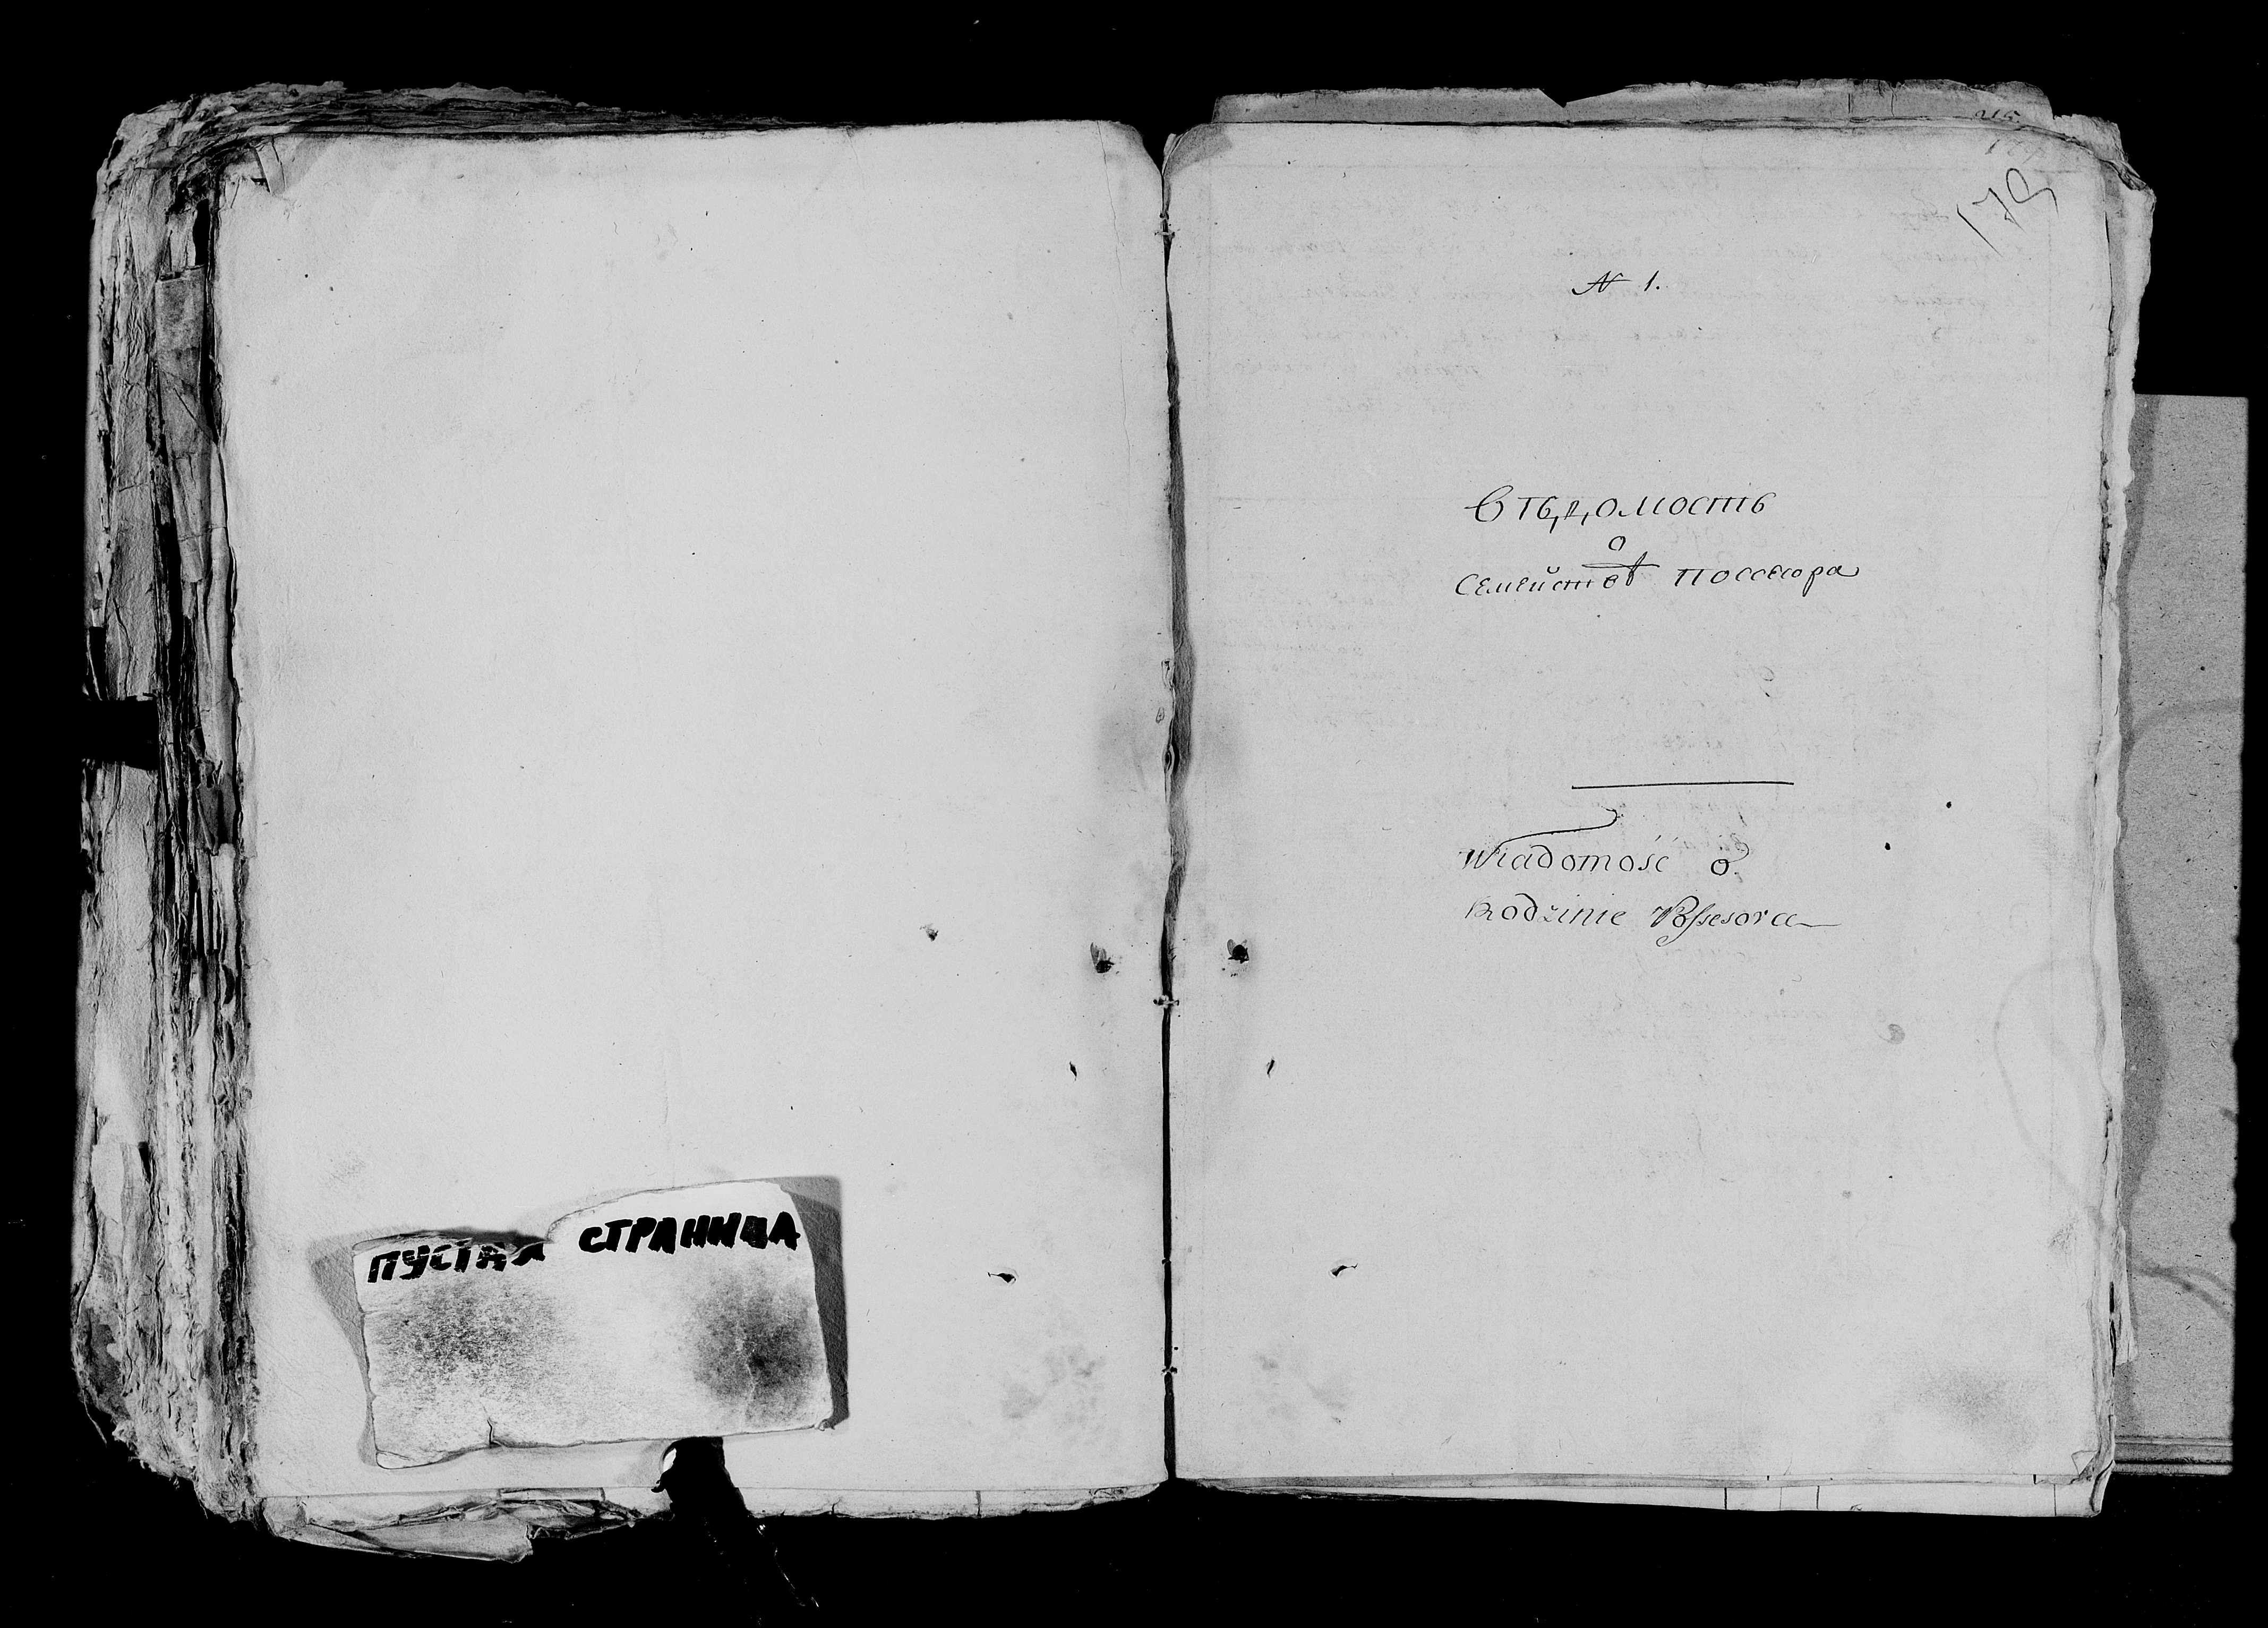 ПУСТАЯ СТРАНИЦА
179
N 1.
Вѣдомость
о
Семействѣ Поссесора
Wiadomość o
Rodzinie Possesora